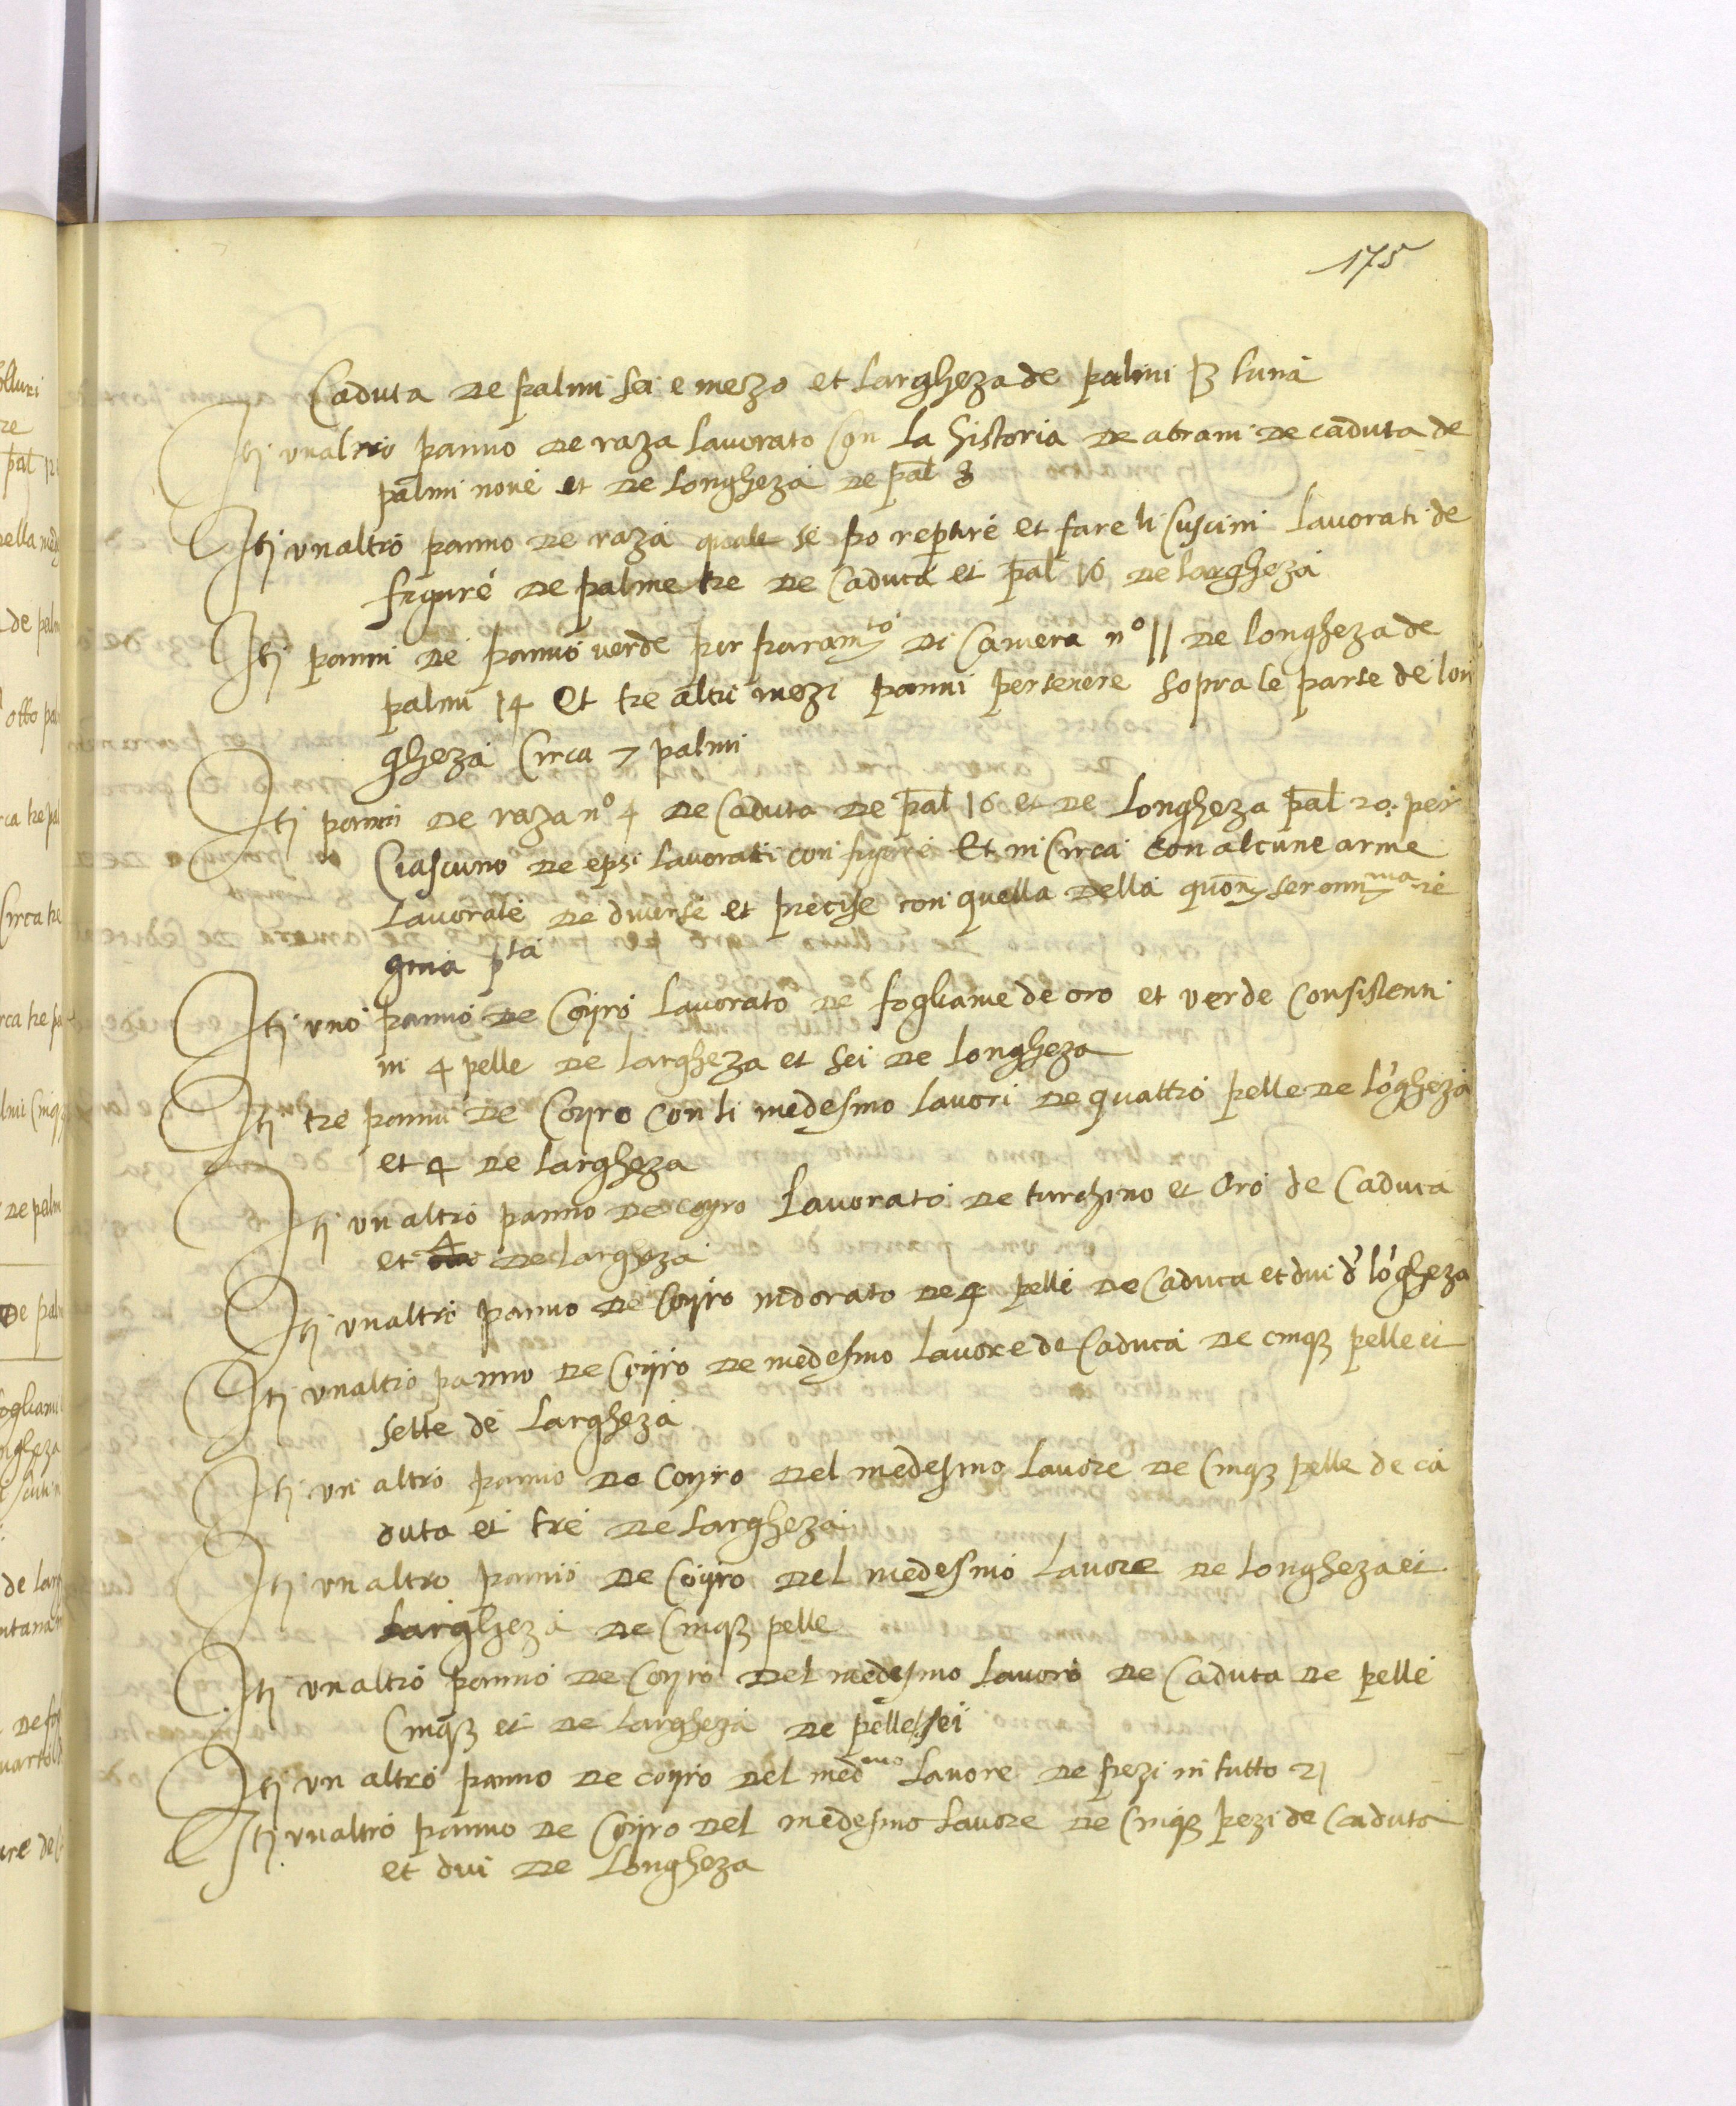 175
Caduta de palmi sei e mezo et largheza de palmi 3 luna
Itj unaltro panno de raza lavorato con la historia de abram de caduta de
palmi nove et de longheza de pal 8
Itj unaltro panno de raza quale se po repture et fare li cuscini lavorati de
figure de palme tre de caduta et pal 16 de largheza
Itj panni de panno verde per paramto di camera n° 11 de longheza de
palmi 14 et tre altri mezi panni per sopra le parte de lon
gheza circa 7 palmi
Itj panni de raza n° 4 de caduta de pal 16 et de longheza pal 20: per
ciascuno de epsi lavorati con figure et in circa con alcune arme
lavorate de diverse et precise con quella della quonj
gina pta
Itj uno panno de Coyro lavorato de fogliame de oro et verde consistenti
in 4 pelle de largheza et sei de longheza
Itj tre panni de Coyro con li medesmo lavori de quattro pelle de lógheza
et 4 de largheza
Itj un altro panno de coyro lavorato de turchino et oro de caduta
et 4 de largheza
Itj unaltro panno de Coyro indorato de 4 pelle de caduta et dui d' lógheza
Itj unaltro panno de Coyro de medesmo lavore de caduta de cinqz pelle et
sette de largheza
Itj un altro panno de Coyro del medesmo lavore de cinqz pelle de ca
duta et tre de largheza
Itj un altro panno de Coyro del medesmo lavore de longheza et
largheza de cinqz pelle
Itj unaltro panno de Coyro del medesmo lavoro de caduta de pelle
cinqz et de largheza de pelle sei
Itj un altro panno de coyro del medmo lavore de pezi in tutto 21
Itj unaltro panno de Coyro del medesmo lavore de cinqz pezi de caduta
et dui de longheza